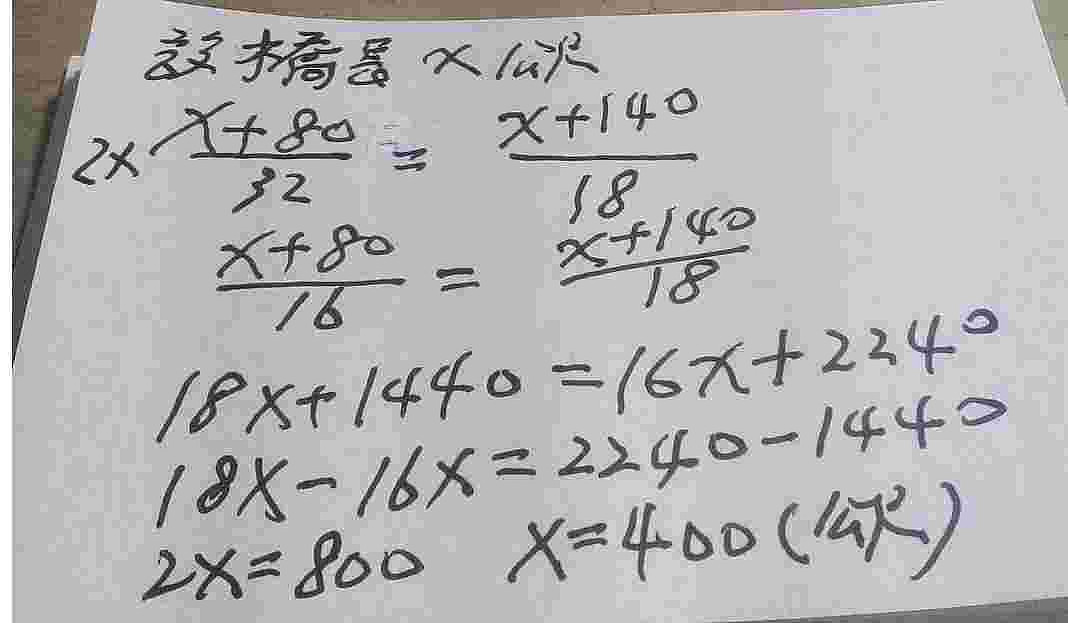 設橋長 x 公尺
2x (x+80)/32 = (x+140)/18
(x+80)/16 = (x+140)/18
18x+1440=16x+2240
18x-16x=2240-1440
2x=800 x=400(公尺)